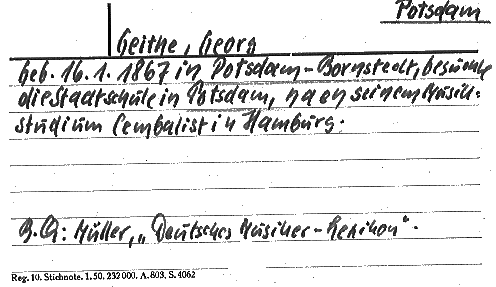 Potsdam
Geithe, Georg
Geb. 16.1.1867 in Potsdam-Bornstedt, besuchte
die Stadtschule in Potsdam, nach seinem Musik=
studium Cembalist in Hamburg.
B.Q: Müller, „Deutsches Musiker-Lexikon".
Reg. 10. Stichnote. 1. 50. 232000. A. 803. S. 4062